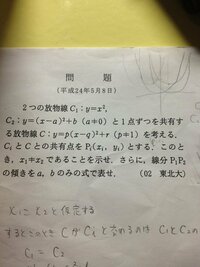 問題
(平成24年5月8日)
2つの放物線 C₁：y＝x²,
C₂：y＝(x－a)²＋b (a≠0) と1点ずつを共有す
る放物線 C：y＝p(x－q)²＋r (p≠1) を考える.
Cᵢ と C との共有点を Pᵢ(xᵢ, yᵢ) とする. このと
き, x₁≠x₂ であることを示せ. さらに, 線分 P₁P₂
の傾きを a, b のみの式で表せ. (02 東北大)
x₁＝x₂と仮定する
C₁＝C₂